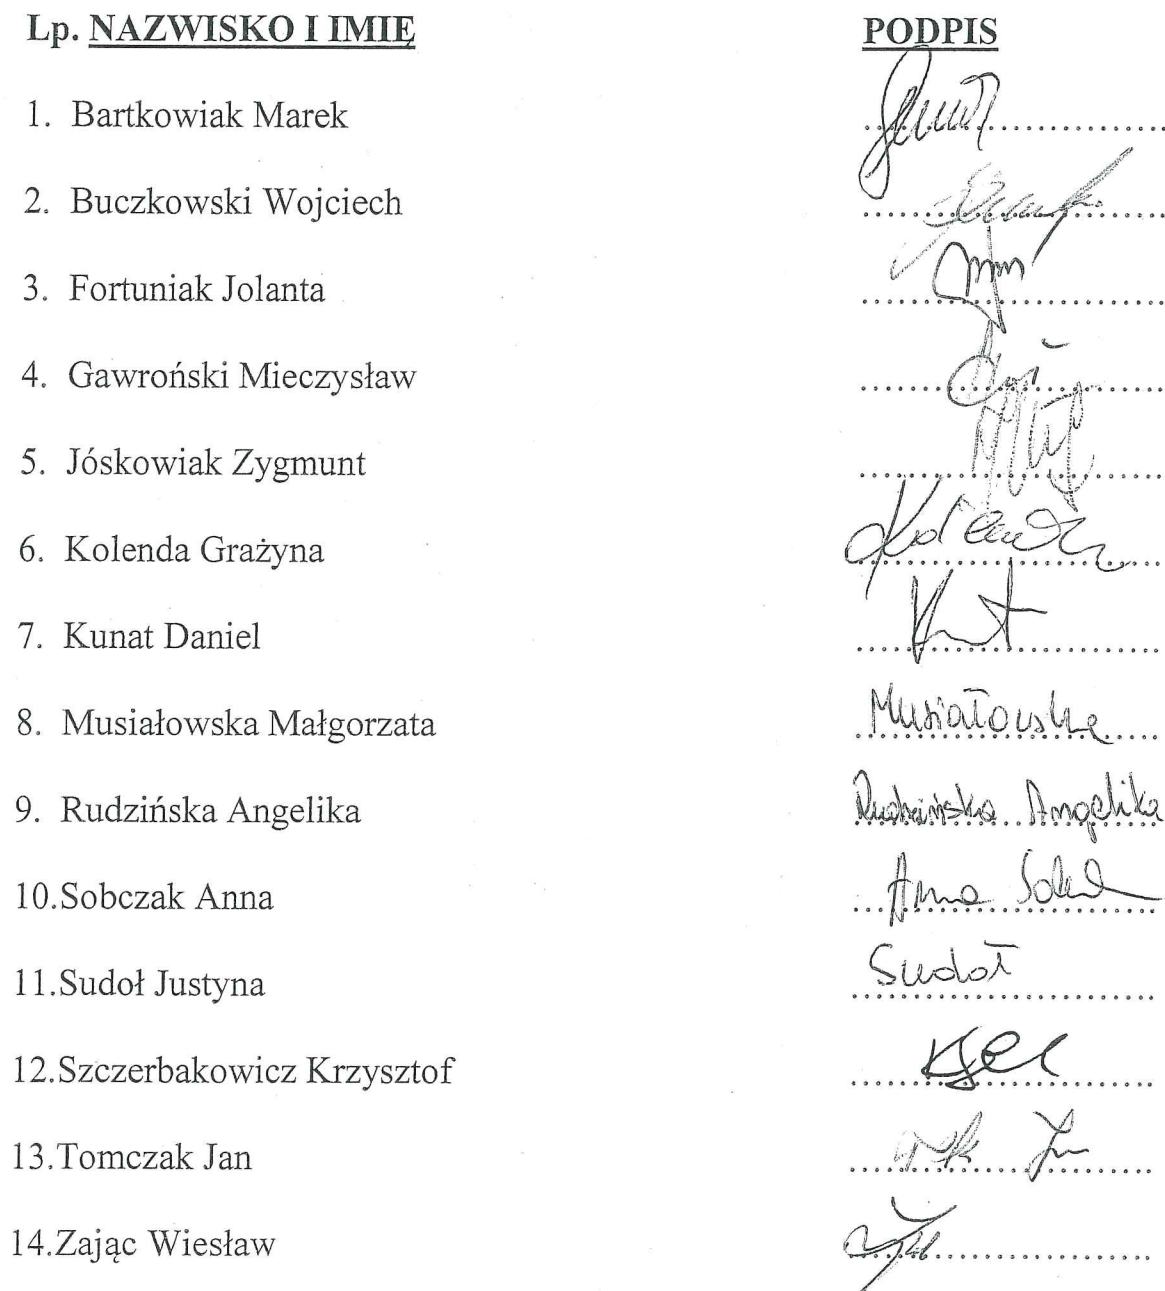 Lp. NAZWISKO I IMIĘ PODPIS
1. Bartkowiak Marek
2. Buczkowski Wojciech
3. Fortuniak Jolanta
4. Gawroński Mieczysław
5. Jóskowiak Zygmunt
6. Kolenda Grażyna
7. Kunat Daniel
8. Musiałowska Małgorzata Musiałowska
9. Rudzińska Angelika Rudzińska Angelika
10.Sobczak Anna Anna
11.Sudoł Justyna Sudoł
12.Szczerbakowicz Krzysztof
13.Tomczak Jan
14.Zając Wiesław